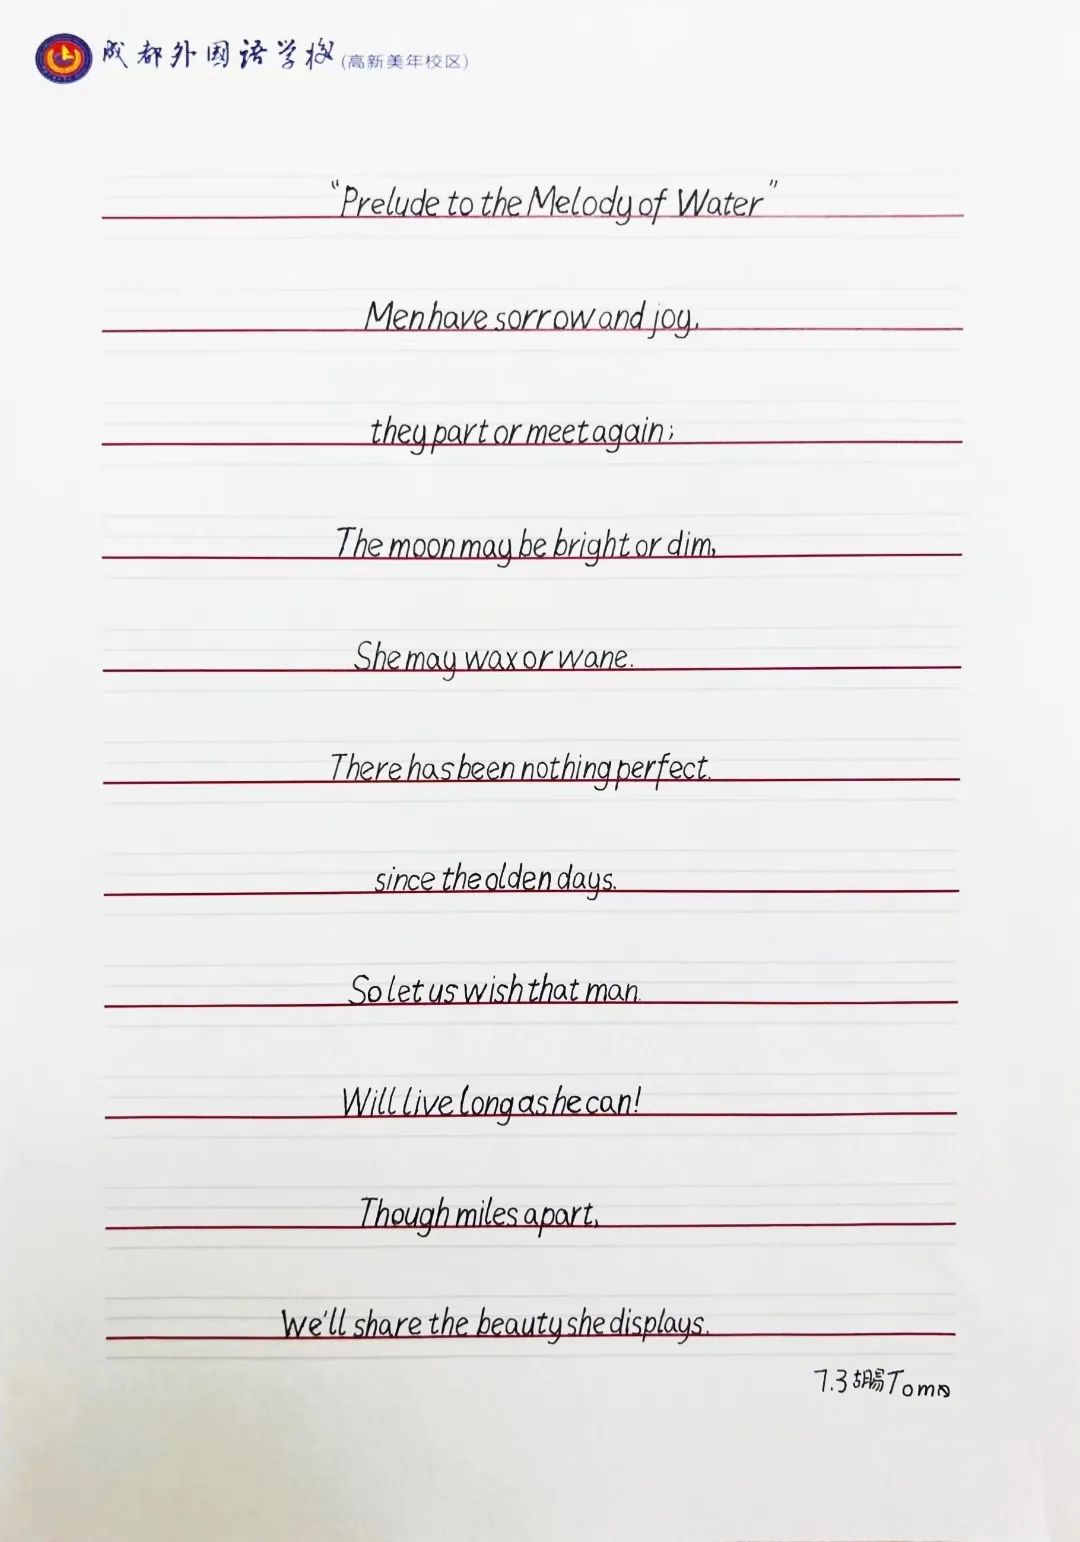 成都外国语学校(高新美年校区)
"Prelude to the Melody of Water"
Men have sorrow and joy,
they part or meet again;
The moon may be bright or dim,
She may wax or wane.
There has been nothing perfect.
since the olden days.
So let us wish that man.
Will live long as he can!
Though miles apart,
We'll share the beauty she displays.
7.3 胡 Tom